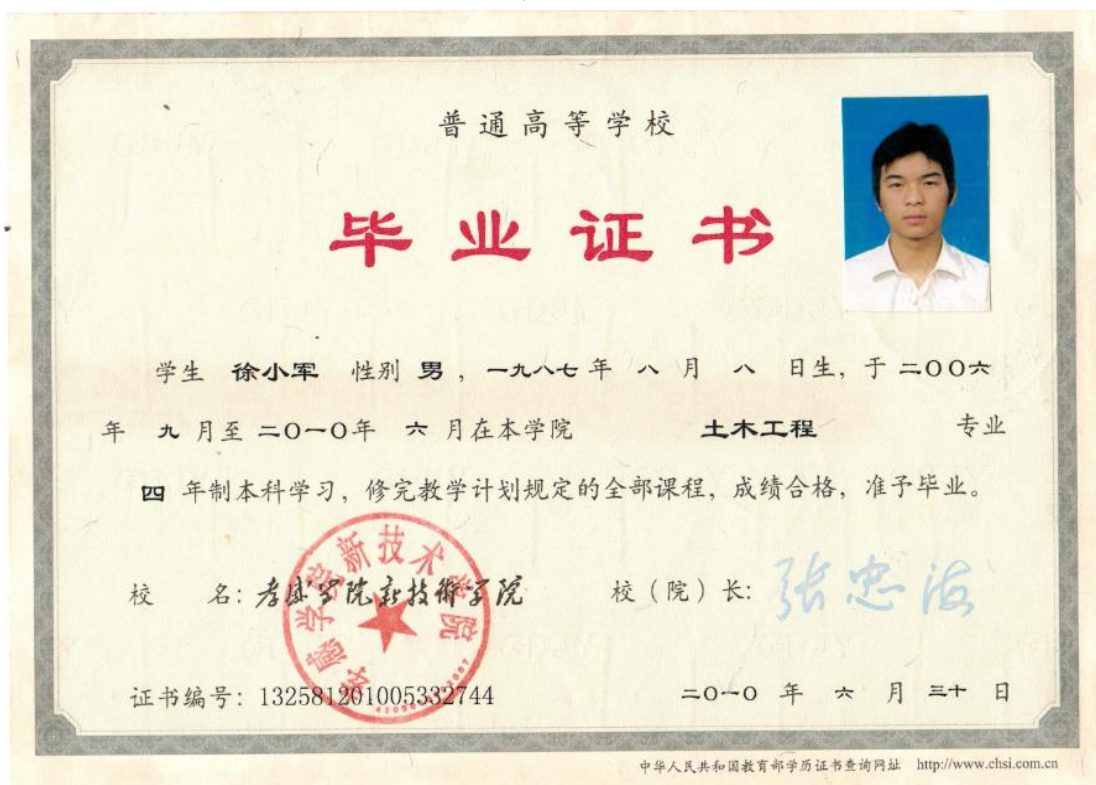 普通高等学校
毕业证书
学生 徐小军 性别 男，一九八七年 八 月 八 日生，于 二〇〇六
年 九 月至 二〇一〇年 六 月在本学院 土木工程 专业
四 年制本科学习，修完教学计划规定的全部课程，成绩合格，准予毕业。
孝感学院新技术学院
校 名：孝感学院新技術学院 校（院）长：张忠海
证书编号：132581201005332744
二〇一〇 年 六 月 三十 日
中华人民共和国教育部学历证书查询网址 http://www.chsi.com.cn